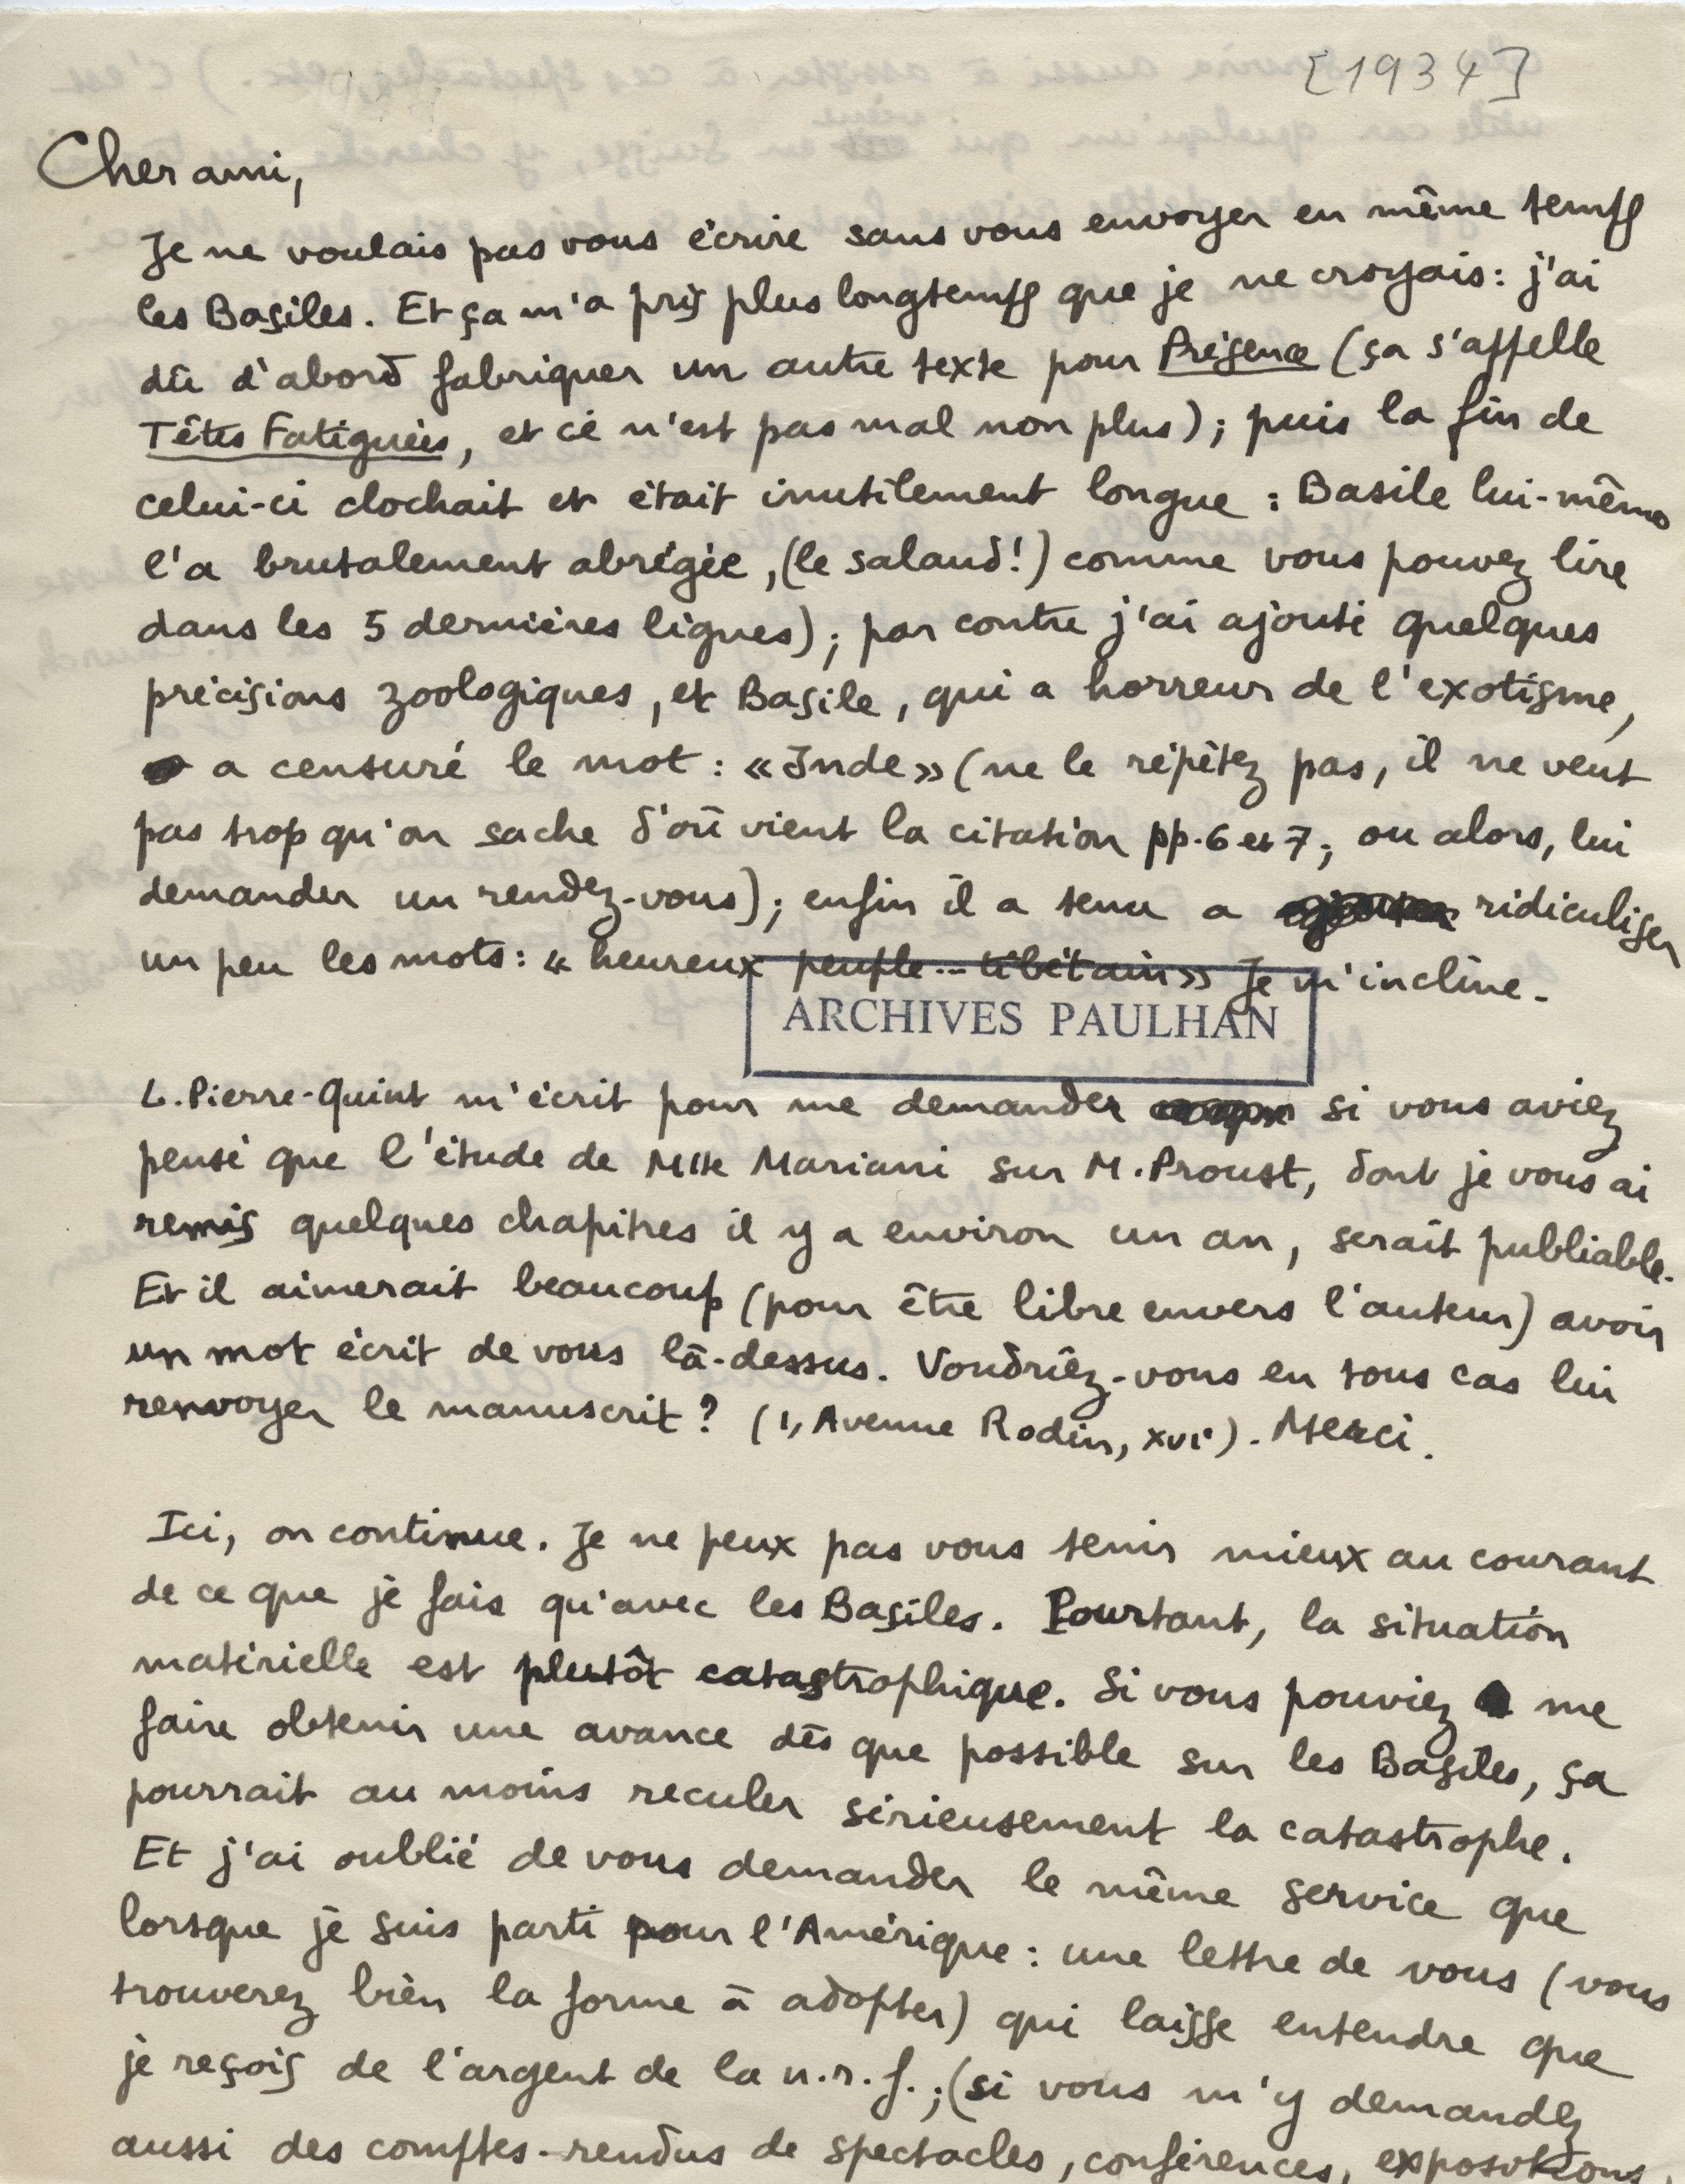 [1934]
Cher ami,
Je ne voulais pas vous écrire sans vous envoyer en même temps
les Basiles. Et ça m'a pris plus longtemps que je ne croyais : j'ai
dû d'abord fabriquer un autre texte pour Présence (ça s'appelle
Têtes Fatiguées, et ce n'est pas mal non plus) ; puis la fin de
celui-ci clochait et était inutilement longue : Basile lui-même
l'a brutalement abrégée, (le salaud !) comme vous pouvez lire
dans les 5 dernières lignes) ; par contre j'ai ajouté quelques
précisions zoologiques, et Basile, qui a horreur de l'exotisme,
a censuré le mot : « Inde » (ne le répétez pas, il ne veut
pas trop qu'on sache d'où vient la citation pp. 6 et 7 ; ou alors, lui
demander un rendez-vous) ; enfin il a tenu a ridiculiser
un peu les mots : « heureux peuple... tibétain » Je m'incline.
ARCHIVES PAULHAN
L. Pierre-Quint m'écrit pour me demander si vous aviez
pensé que l'étude de Mlle Mariani sur M. Proust, dont je vous ai
remis quelques chapitres il y a environ un an, serait publiable.
Et il aimerait beaucoup (pour être libre envers l'auteur) avoir
un mot écrit de vous là-dessus. Voudriez-vous en tous cas lui
renvoyer le manuscrit ? (1, Avenue Rodin, XVIe). Merci.
Ici, on continue. Je ne peux pas vous tenir mieux au courant
de ce que je fais qu'avec les Basiles. Pourtant, la situation
matérielle est plutôt catastrophique. Si vous pouviez me
faire obtenir une avance dès que possible sur les Basiles, ça
pourrait au moins reculer sérieusement la catastrophe.
Et j'ai oublié de vous demander le même service que
lorsque je suis parti pour l'Amérique : une lettre de vous (vous
trouverez bien la forme à adopter) qui laisse entendre que
je reçois de l'argent de la n.r.f. ; (si vous m'y demandez
aussi des comptes-rendus de spectacles, conférences, expositions,